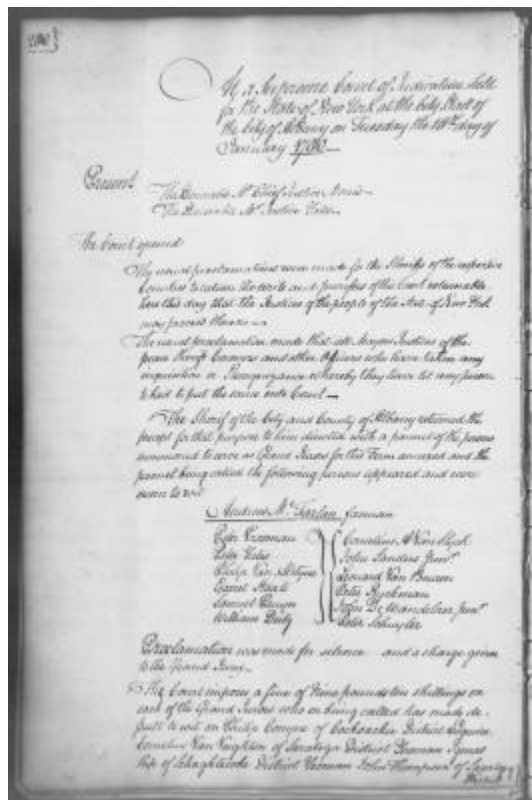 At a Supreme Court of Judicature held
for the State of New York at the City Hall of
the City of Albany on Tuesday the day of
January
Present
The Honorable Mr Chief Justice
The Honorable Mr Justice
The Court opened
The usual proclamations were made for the Sheriffs of the respective
Counties to return the writs and precepts of this Court returnable
here this day that the Justices of the people of the State of New York
may proceed thereon
The usual proclamation made that all Mayors Justices of the
peace Sheriffs Coroners and other Officers who have taken any
inquisition or Recognizance whereby they have let any person
to bail to put the same into Court
The Sheriff of the City and County of Albany returned the
precept for that purpose to him directed with a pannel of the persons
summoned to serve as Grand Jurors for this Term annexed and the
pannel being called the following persons appeared and were
sworn to wit
Andrew Mc Farlan foreman
Peter Vrooman
Cornelius A Van Slyck
John Sanders Junr
Philip Van
Leonard Van Buren
Garret Staats
Peter Ryckman
Samuel
John De Wandelaer Junr
William
Peter Schuyler
Proclamation was made for silence and a charge given
to the Grand Jury
The Court impose a fine of Nine pounds ten shillings on
each of the Grand Jurors who on being called has made de
fault to wit on Philip Conyne of Coxsackie District Esquire
Cornelius Van Veghten of Saratoga District Yeoman
of Schaghticoke District Yeoman John Thompson of